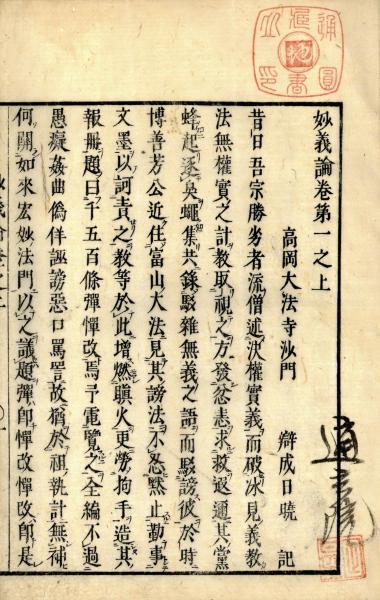 妙義論卷第一之上
高岡大法寺沙門 辯成日曉 記
昔日吾宗勝劣者流僧述決權實義而破氷見義教
法無權實之計教取視之方發忿恚求救遐邇其黨
蜂起逐臭蠅集共錄駁雜無義之語而駁謗彼於時
博善芳公近住富山大法見其謗法不忍黙止勤事
文墨以訶責之教等於此增燃瞋火更勞拘手造其
報冊題曰千五百條彈憚改焉予電覽之全編不過
愚癡姦曲偽佯誣謗惡口罵詈故猶於祖執計無補
何關如來宏妙法門以之議題彈卽憚改憚改卽是